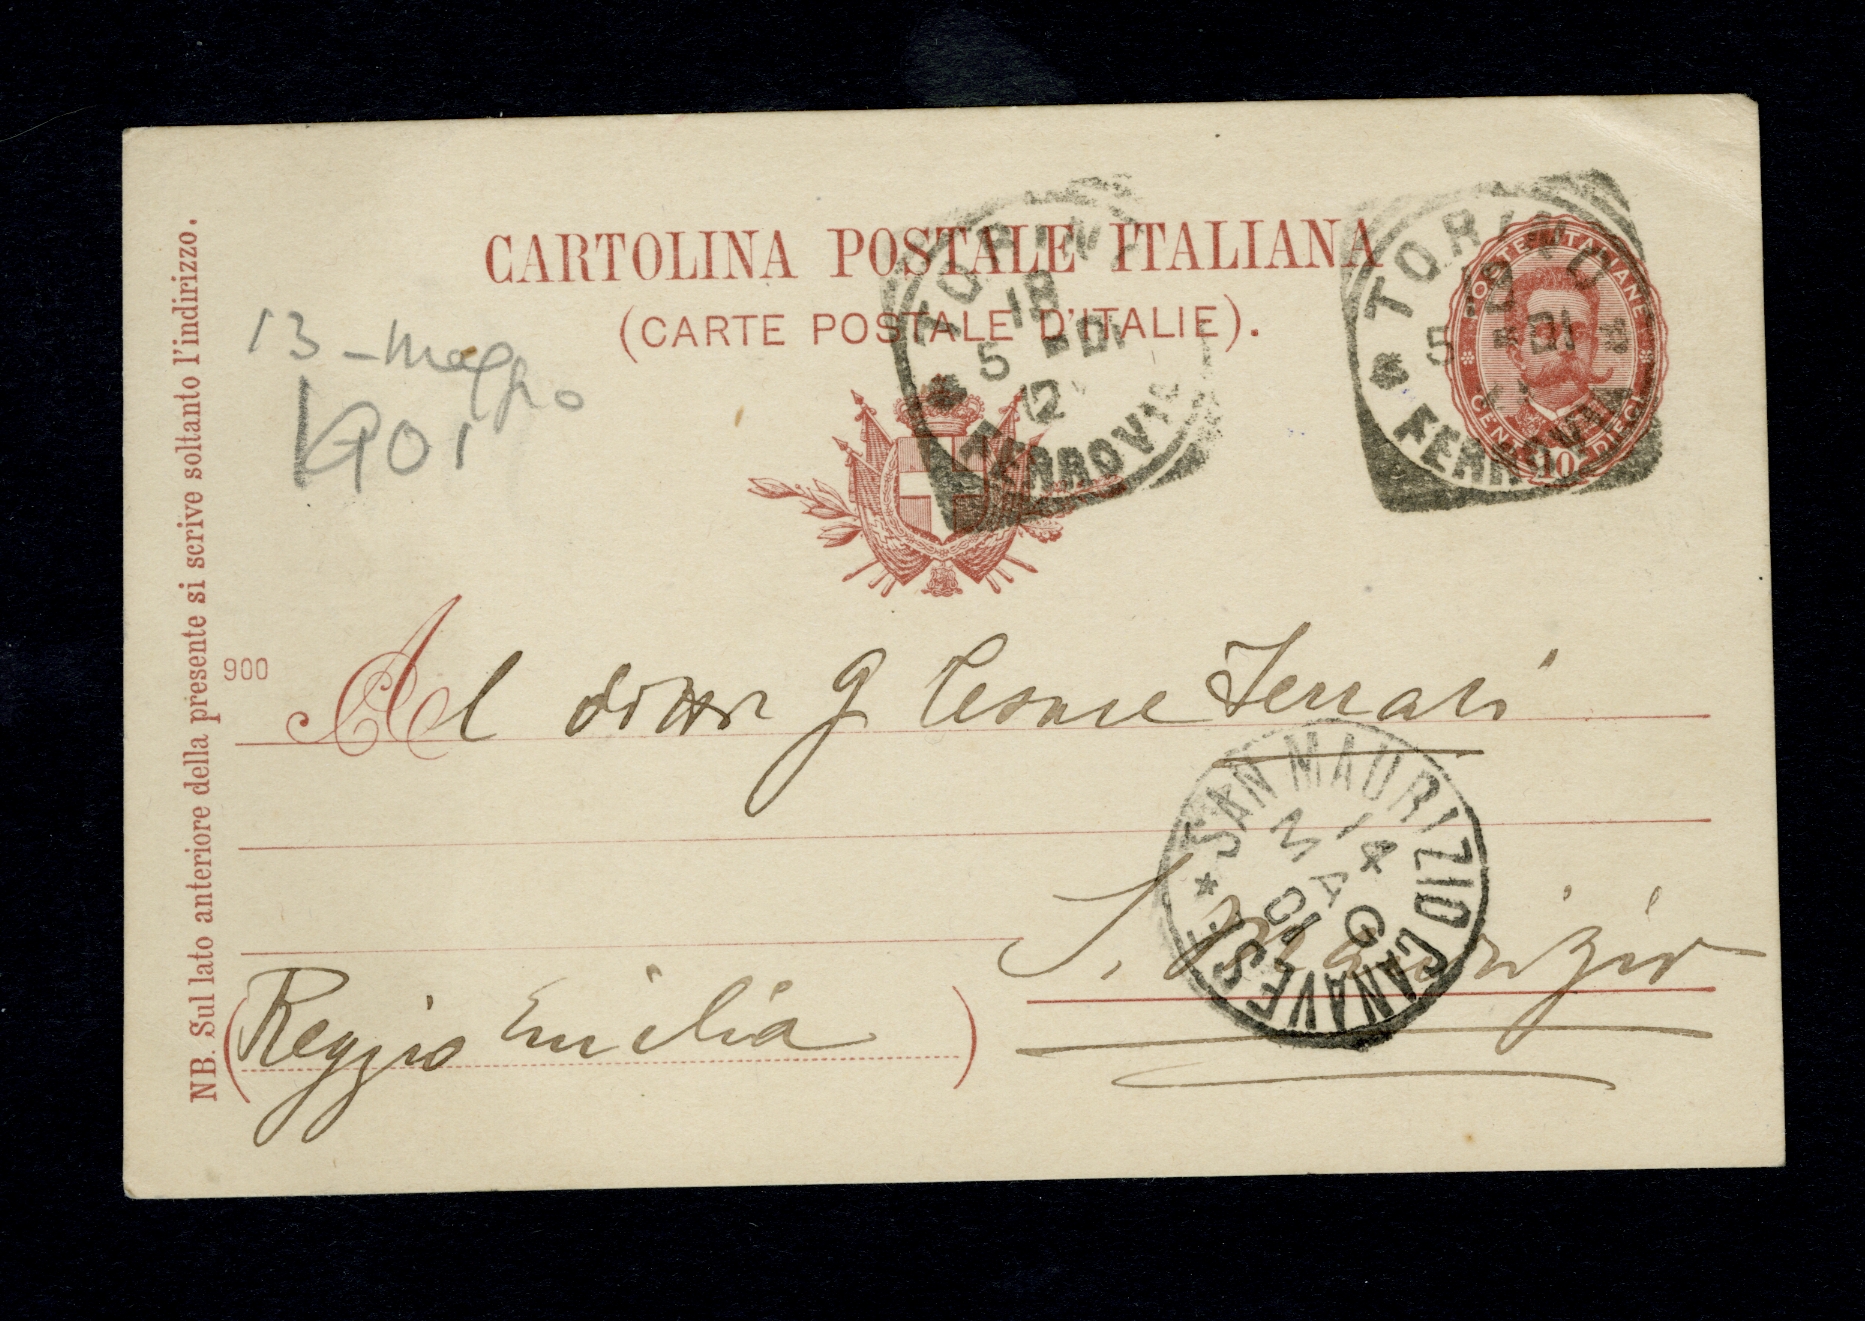 CARTOLINA POSTALE ITALIANA
(CARTE POSTALE D'ITALIE).
NB. Sul lato anteriore della presente si scrive soltanto l'indirizzo.
13 - Maggio
1901
TORINO
18
5 - 01
12
* FERROVIA
TORINO
5 - 01
* FERROVIA *
POSTE ITALIANE
CENT. 10 DIECI
900
Al dottor G Cesare Ferrari
* SAN MAURIZIO CANAVESE
14
MAG
01
S. Maurizio
(Reggio Emilia)